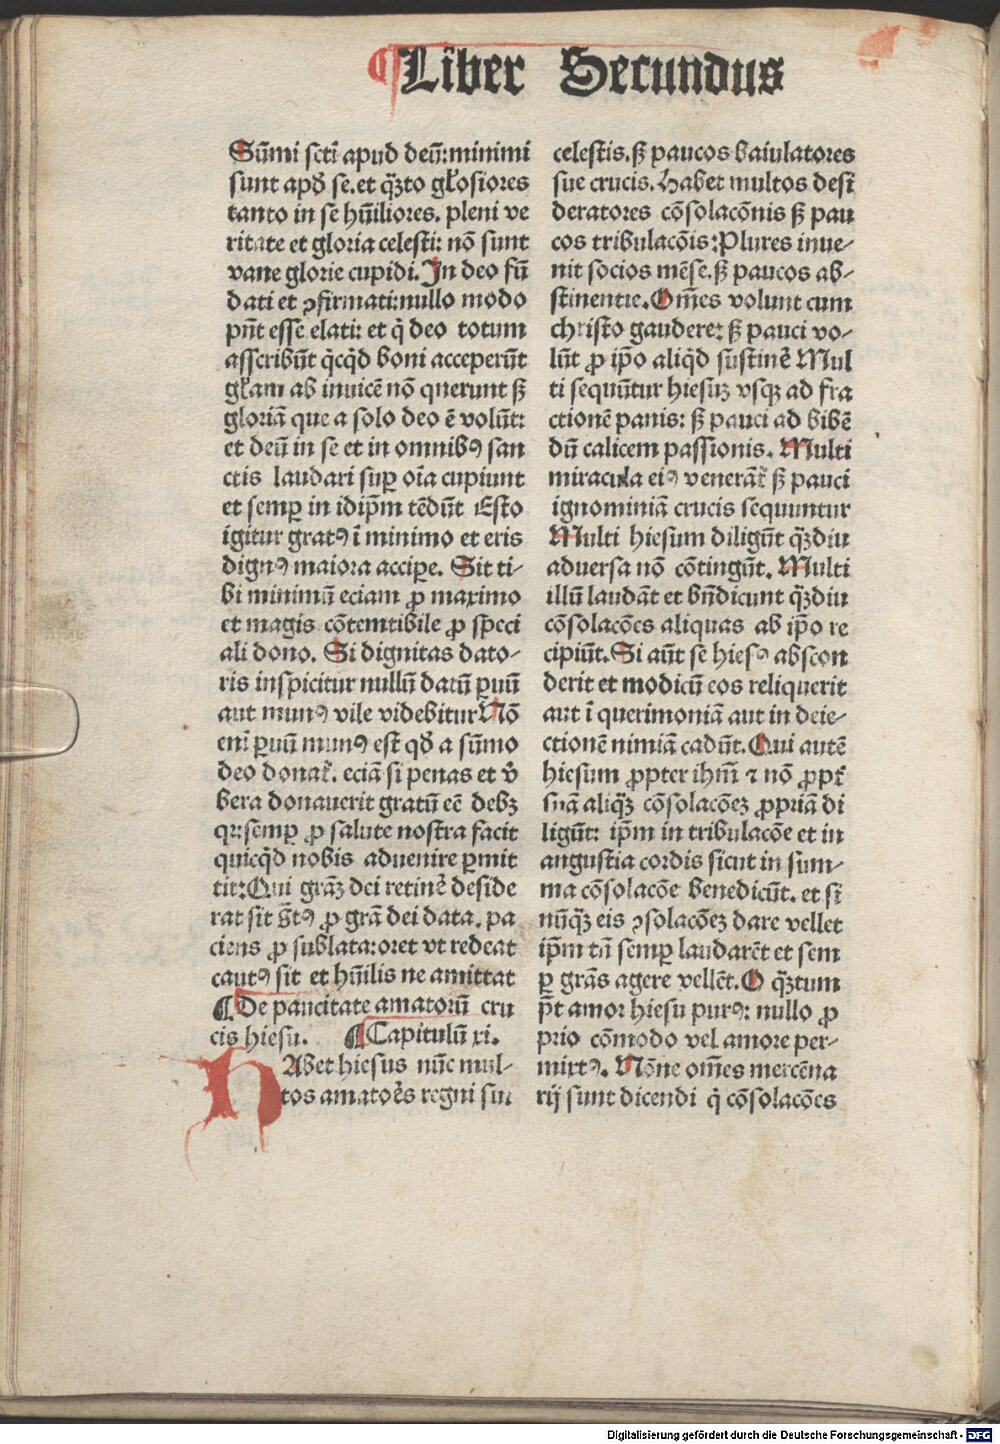 ¶Liber Secundus
Sūmi scti apud deū:minimi
sunt apd̕ se.et q̄ȝto gl̄osiores
tanto in se hūiliores. pleni ve
ritate et gloria celesti: nō sunt
vane glorie cupidi. In deo fū
dati et ꝯfirmati:nullo modo
pn̄t esse elati: et q̇ deo totum
asscribūt q̇cq̇d boni acceperūt
gl̄am ab inuicē nō querunt sꝫ
gloriā que a solo deo ē volūt:
et deū in se et in omnibꝰ san
ctis laudari suꝑ oīa cupiunt
et semꝑ in idip̄m tēdūt Esto
igitur gratꝰ ī minimo et eris
dignꝰ maiora accipe. Sit ti⸗
bi minimū eciam ꝓ maximo
et magis cōtemtibile ꝓ speci
ali dono. Si dignitas dato⸗
ris inspicitur nullū datū ꝑuū
aut munꝰ vile videbitur Nō
enī ꝑuū munꝰ est qd̕ a sūmo
deo donat̄. eciā si penas et v̄
bera donauerit gratū eē debꝫ
qꝛ:semꝑ ꝓ salute nostra facit
quicq̇d nobis aduenire ꝑmit
tit:Qui grāȝ dei retinē deside
rat sit gͣtꝰ ꝓ grā dei data. pa
ciens ꝓ sublata:oret vt redeat
cautꝰ sit et hūilis ne amittat
¶De paucitate amatorū cru
cis hiesu. ¶Capitulū xi.
HAbet hiesus nūc mul⸗
tos amatores regni sui
celestis.sꝫ paucos baiulatores
sue crucis. Habet multos desi
deratores cōsolacōnis sꝫ pau
cos tribulacōis:Plures inue⸗
nit socios mēse.sꝫ paucos ab⸗
stinentie. Om̄es volunt cum
christo gaudere: sꝫ pauci vo⸗
lūt ꝓ ip̄o aliq̇d sustinē Mul
ti sequūtur hiesuȝ vsqꝫ ad fra
ctionē panis: sꝫ pauci ad bibē
dū calicem passionis. Multi
miracula eiꝰ venerāt̄ sꝫ pauci
ignominiā crucis sequuntur
Multi hiesum diligūt q̄ȝdiu
aduersa nō cōtingūt. Multi
illū laudāt et bn̄dicunt q̄ȝdiu
cōsolacōes aliquas ab ip̄o re
cipiūt. Si aūt se hiesꝰ abscon
derit et modicū eos reliquerit
aut ī querimoniā aut in deie⸗
ctionē nimiā cadūt. Qui autē
hiesum ꝓpter ihm̄ ⁊ nō ꝓpt̄
suā aliq̄ȝ cōsolacōeȝ ꝓpriā di
ligūt: ip̄m in tribulacōe et in
angustia cordis sicut in sum⸗
ma cōsolacōe benedicūt. et si
nūq̄ȝ eis ꝯsolacōeȝ dare vellet
ip̄m tn̄ semꝑ laudarēt et sem
ꝑ grās agere vellēt. O q̄ȝtum
pt̄ amor hiesu purꝰ: nullo ꝓ
prio cōmodo vel amore per⸗
mixtꝰ. Nōne om̄es mercēna
rij sunt dicendi q̇ cōsolacōes
Digitalisierung gefördert durch die Deutsche Forschungsgemeinschaft - DFG